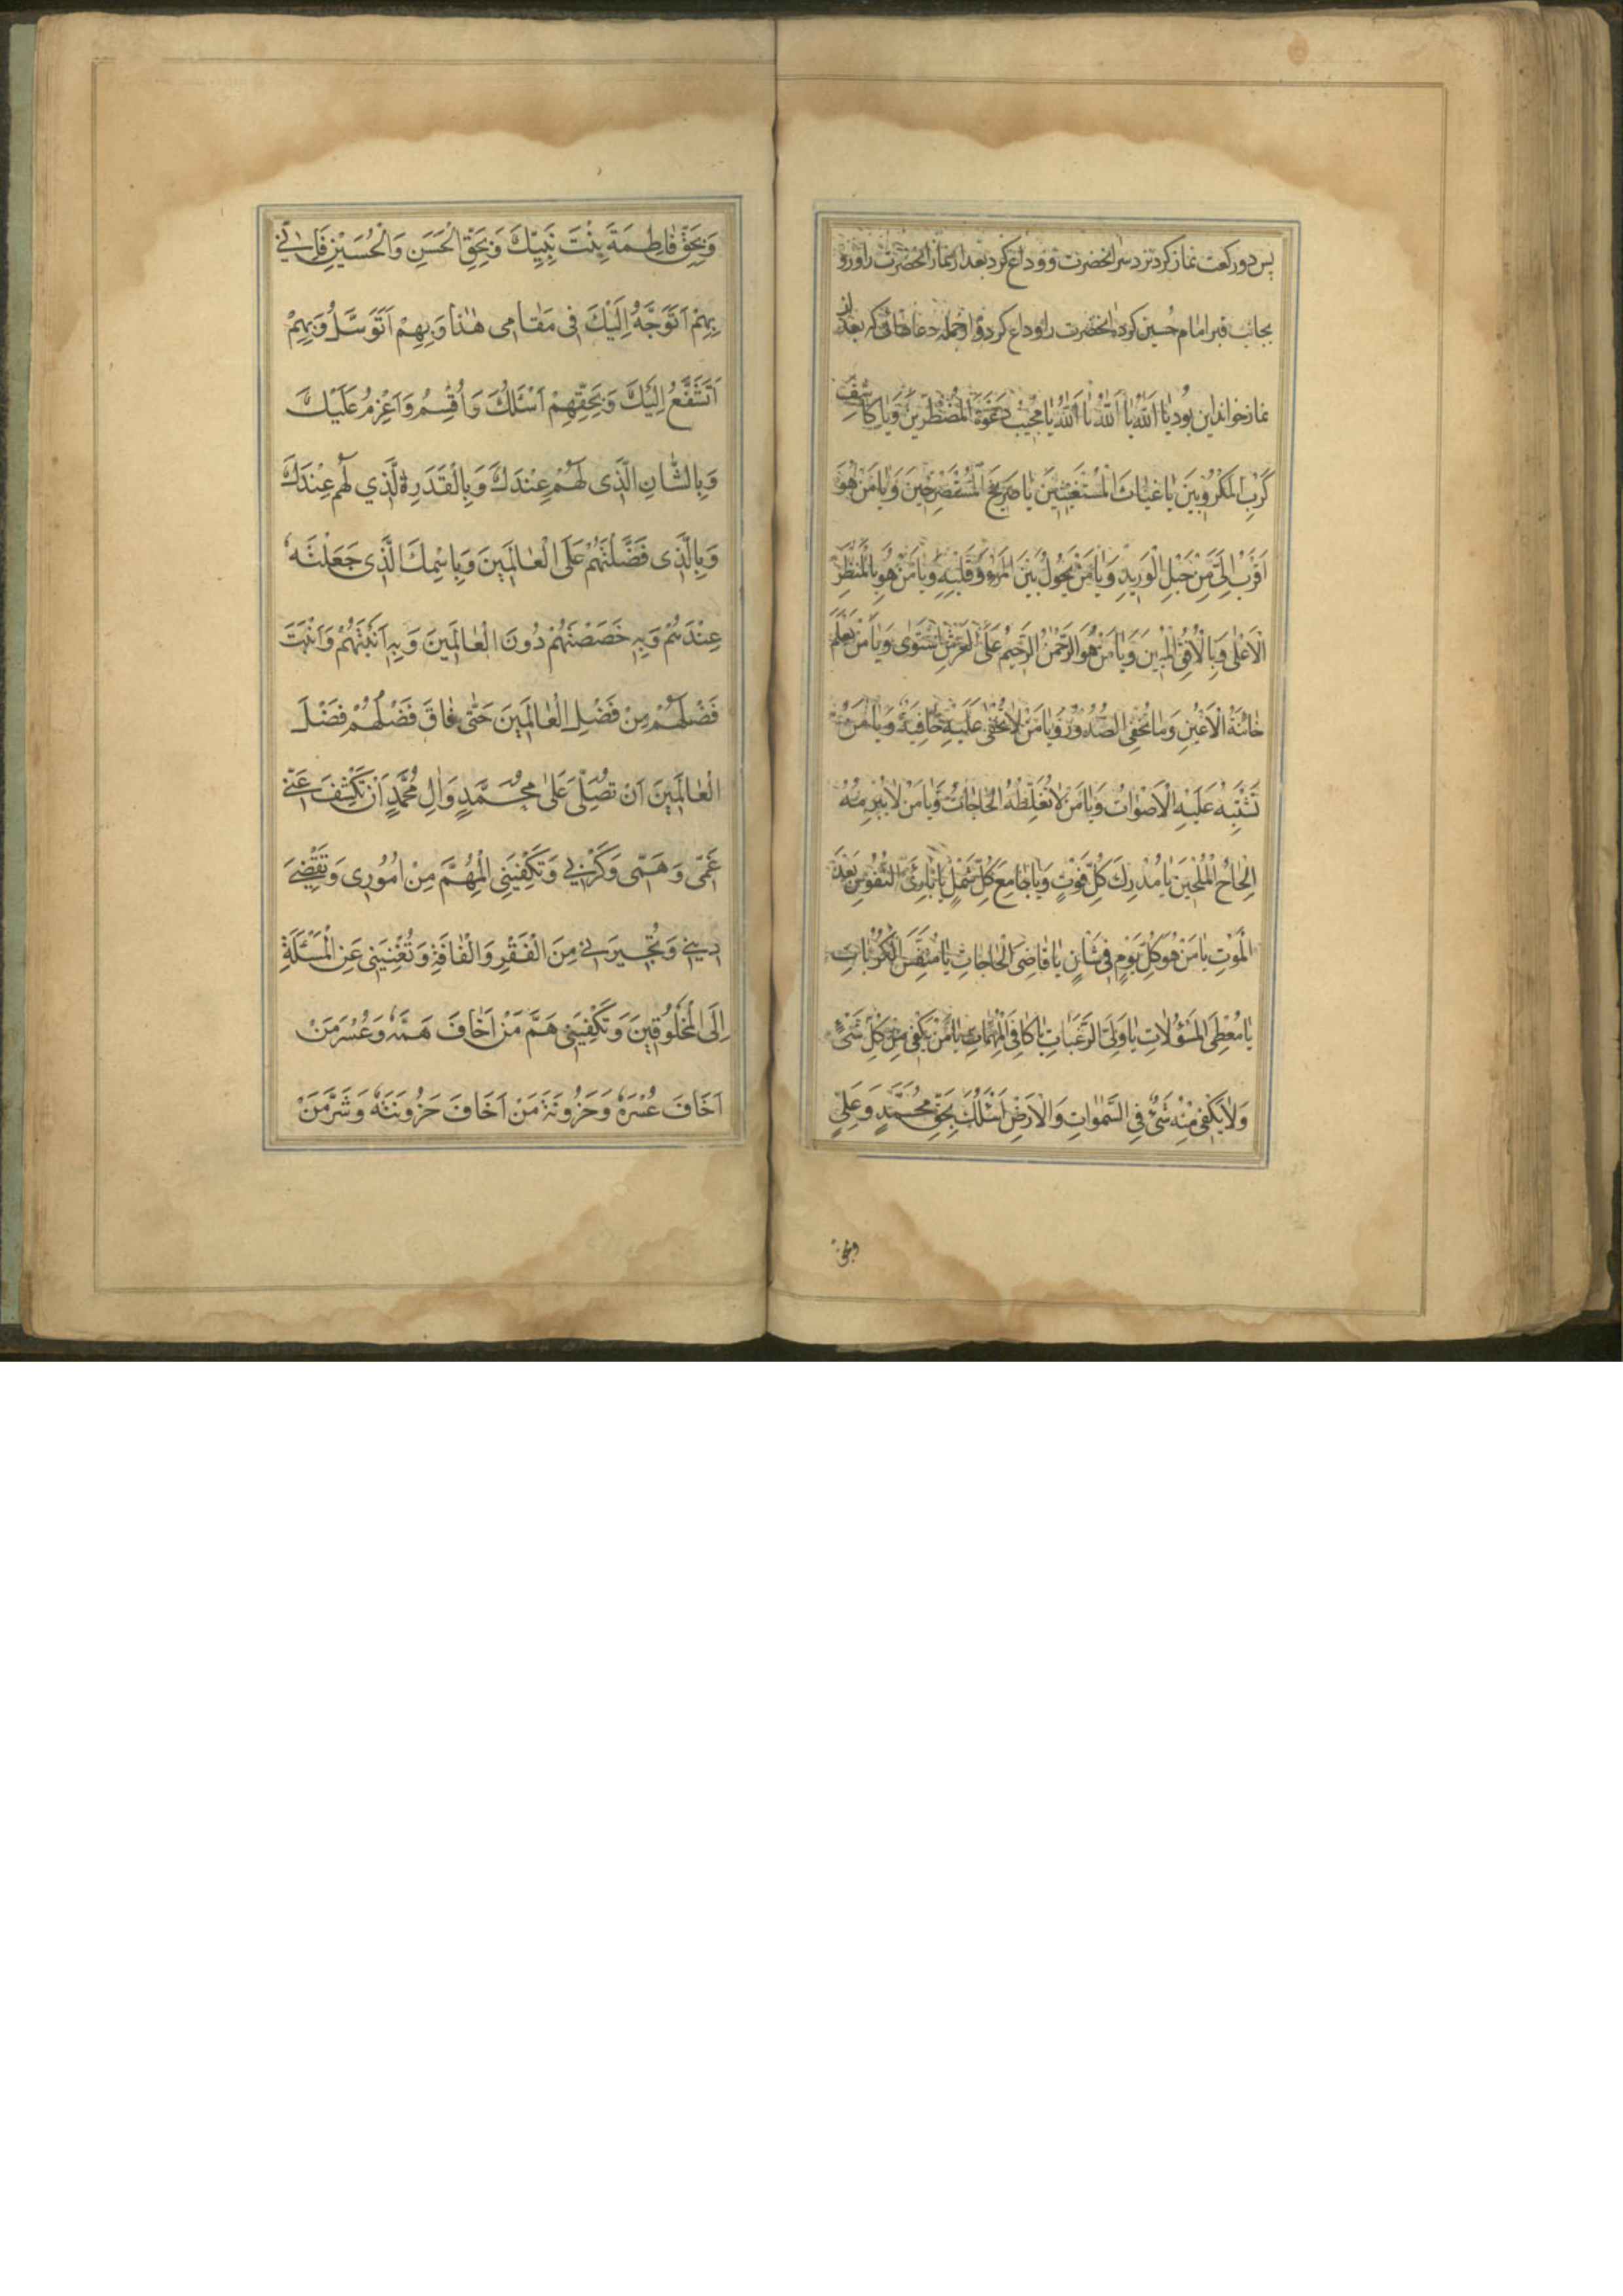 پس دو رکعت نماز کرد نزد سر انحضرت و وداع کرد بعد از نماز انحضرت را و رو
بجانب قبر امام حسین کرده انحضرت را وداع کرد و از جمله دعاهائی که بعد از
نماز خواند این بود یا اَللّٰهُ یا اَللّٰهُ یا اَللّٰهُ یا مُجیبَ دَعْوَةِ الْمُضْطَرّینَ وَیا کاشِفَ
کَرْبِ الْمَکْرُوبینَ یا غِیاثَ الْمُسْتَغیثینَ یا صَریخَ الْمُسْتَصْرِخینَ وَیا مَنْ هُوَ
اَقْرَبُ اِلَیَّ مِنْ حَبْلِ الْوَریدِ وَیا مَنْ یَحُولُ بَیْنَ الْمَرْءِ وَقَلْبِهِ وَیا مَنْ هُوَ بِالْمَنْظَرِ
الْاَعْلٰی وَبِالْاُفُقِ الْمُبینِ وَیا مَنْ هُوَ الرَّحْمٰنُ الرَّحیمُ عَلَی الْعَرْشِ اسْتَوٰی وَیا مَنْ یَعْلَمُ
خائِنَةَ الْاَعْیُنِ وَما تُخْفِی الصُّدُورُ وَیا مَنْ لا یَخْفٰی عَلَیْهِ خافِیَةٌ وَیا مَنْ لا
تَشْتَبِهُ عَلَیْهِ الْاَصْواتُ وَیا مَنْ لا تُغَلِّطُهُ الْحاجاتُ وَیا مَنْ لا یُبْرِمُهُ
اِلْحاحُ الْمُلِحّینَ یا مُدْرِكَ کُلِّ فَوْتٍ وَیا جامِعَ کُلِّ شَمْلٍ یا بارِئَ النُّفُوسِ بَعْدَ
الْمَوْتِ یا مَنْ هُوَ کُلَّ یَوْمٍ فی شَاْنٍ یا قاضِیَ الْحاجاتِ یا مُنَفِّسَ الْکُرُباتِ
یا مُعْطِیَ الْمَسْؤُلاتِ یا وَلِیَّ الرَّغَباتِ یا کافِیَ الْمُهِمّاتِ یا مَنْ یَکْفی مِنْ کُلِّ شَیْءٍ
وَلا یَکْفی مِنْهُ شَیْءٌ فِی السَّمٰواتِ وَالْاَرْضِ اَسْئَلُكَ بِحَقِّ مُحَمَّدٍ وَعَلِیٍّ
وبحق
وَبِحَقِّ فاطِمَةَ بِنْتِ نَبِیِّكَ وَبِحَقِّ الْحَسَنِ وَالْحُسَیْنِ فَاِنّی
بِهِمْ اَتَوَجَّهُ اِلَیْكَ فی مَقامی هٰذا وَبِهِمْ اَتَوَسَّلُ وَبِهِمْ
اَتَشَفَّعُ اِلَیْكَ وَبِحَقِّهِمْ اَسْئَلُكَ وَاُقْسِمُ وَاَعْزِمُ عَلَیْكَ
وَبِالشَّانِ الَّذی لَهُمْ عِنْدَكَ وَبِالْقَدْرِ الَّذی لَهُمْ عِنْدَكَ
وَبِالَّذی فَضَّلْتَهُمْ عَلَی الْعالَمینَ وَبِاسْمِكَ الَّذی جَعَلْتَهُ
عِنْدَهُمْ وَبِهِ خَصَصْتَهُمْ دُونَ الْعالَمینَ وَبِهِ اَبَنْتَهُمْ وَاَبَنْتَ
فَضْلَهُمْ مِنْ فَضْلِ الْعالَمینَ حَتّٰی فاقَ فَضْلُهُمْ فَضْلَ
الْعالَمینَ اَنْ تُصَلِّیَ عَلٰی مُحَمَّدٍ وَاٰلِ مُحَمَّدٍ اَنْ تَکْشِفَ عَنّی
غَمّی وَهَمّی وَکَرْبی وَتَکْفِیَنِی الْمُهِمَّ مِنْ اُمُوری وَتَقْضِیَ
دَیْنی وَتُجیرَنی مِنَ الْفَقْرِ وَالْفاقَةِ وَتُغْنِیَنی عَنِ الْمَسْئَلَةِ
اِلَی الْمَخْلُوقینَ وَتَکْفِیَنی هَمَّ مَنْ اَخافُ هَمَّهُ وَعُسْرَ مَنْ
اَخافَ عُسْرَهُ وَحَزُونَةَ مَنْ اَخافَ حَزُونَتَهُ وَشَرَّ مَنْ